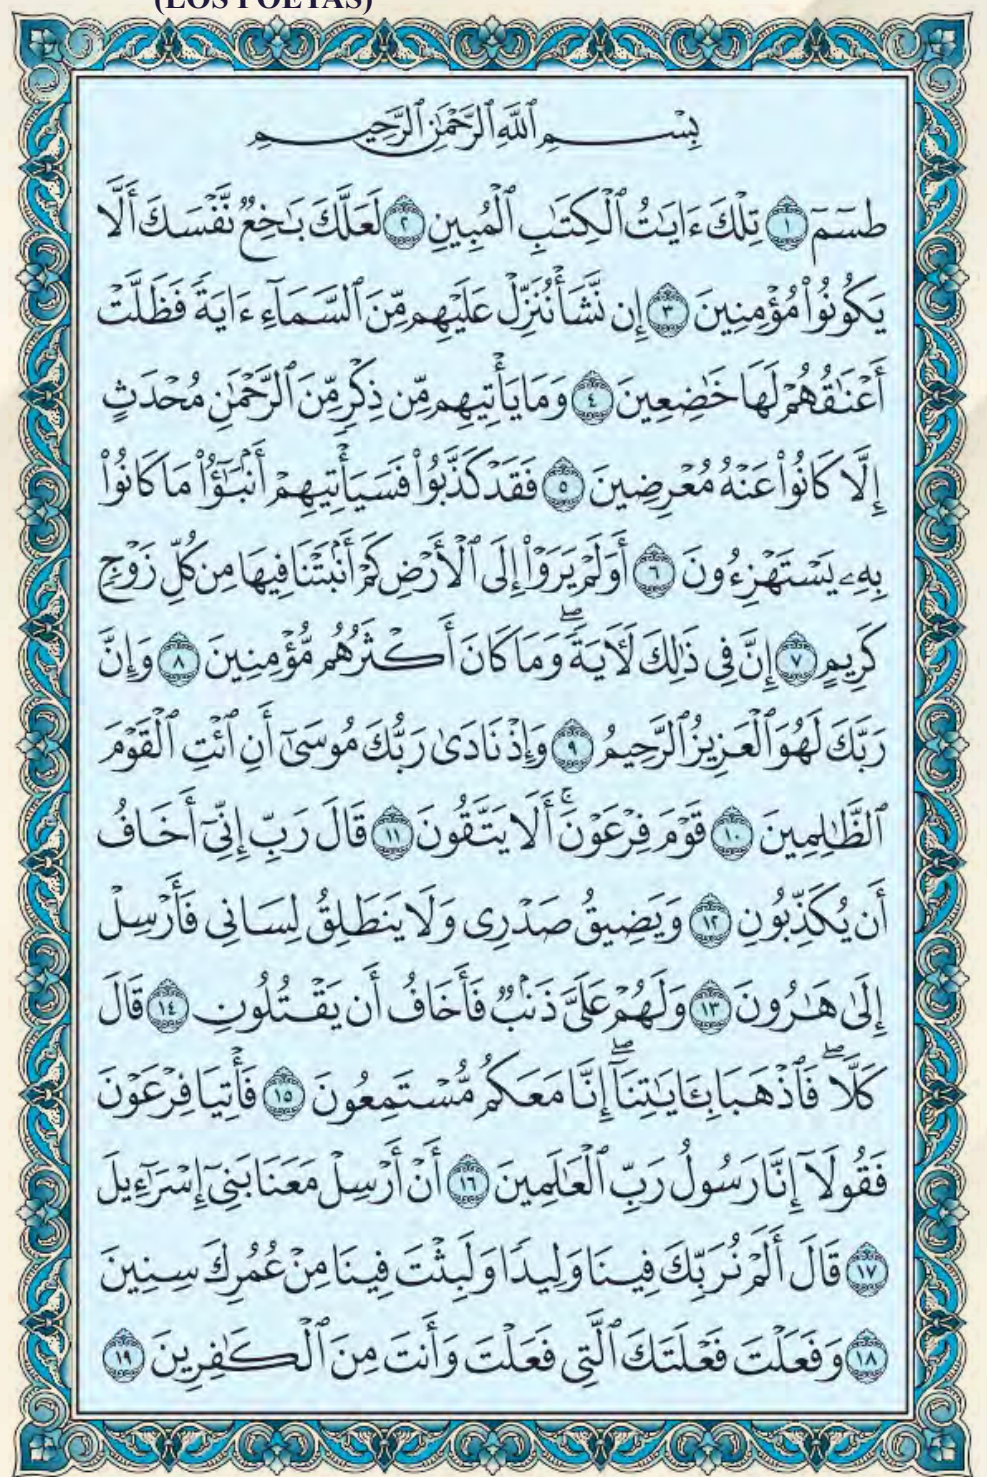 (LOS POETAS)
بِسۡمِ ٱللَّهِ ٱلرَّحۡمَٰنِ ٱلرَّحِيمِ
طسٓمٓ ١ تِلۡكَ ءَايَٰتُ ٱلۡكِتَٰبِ ٱلۡمُبِينِ ٢ لَعَلَّكَ بَٰخِعٞ نَّفۡسَكَ أَلَّا
يَكُونُواْ مُؤۡمِنِينَ ٣ إِن نَّشَأۡ نُنَزِّلۡ عَلَيۡهِم مِّنَ ٱلسَّمَآءِ ءَايَةٗ فَظَلَّتۡ
أَعۡنَٰقُهُمۡ لَهَا خَٰضِعِينَ ٤ وَمَا يَأۡتِيهِم مِّن ذِكۡرٖ مِّنَ ٱلرَّحۡمَٰنِ مُحۡدَثٍ
إِلَّا كَانُواْ عَنۡهُ مُعۡرِضِينَ ٥ فَقَدۡ كَذَّبُواْ فَسَيَأۡتِيهِمۡ أَنۢبَٰٓؤُاْ مَا كَانُواْ
بِهِۦ يَسۡتَهۡزِءُونَ ٦ أَوَلَمۡ يَرَوۡاْ إِلَى ٱلۡأَرۡضِ كَمۡ أَنۢبَتۡنَا فِيهَا مِن كُلِّ زَوۡجٖ
كَرِيمٍ ٧ إِنَّ فِي ذَٰلِكَ لَأٓيَةٗۖ وَمَا كَانَ أَكۡثَرُهُم مُّؤۡمِنِينَ ٨ وَإِنَّ
رَبَّكَ لَهُوَ ٱلۡعَزِيزُ ٱلرَّحِيمُ ٩ وَإِذۡ نَادَىٰ رَبُّكَ مُوسَىٰٓ أَنِ ٱئۡتِ ٱلۡقَوۡمَ
ٱلظَّٰلِمِينَ ١٠ قَوۡمَ فِرۡعَوۡنَۚ أَلَا يَتَّقُونَ ١١ قَالَ رَبِّ إِنِّيٓ أَخَافُ
أَن يُكَذِّبُونِ ١٢ وَيَضِيقُ صَدۡرِي وَلَا يَنطَلِقُ لِسَانِي فَأَرۡسِلۡ
إِلَىٰ هَٰرُونَ ١٣ وَلَهُمۡ عَلَيَّ ذَنۢبٞ فَأَخَافُ أَن يَقۡتُلُونِ ١٤ قَالَ
كَلَّاۖ فَٱذۡهَبَا بِـَٔايَٰتِنَآۖ إِنَّا مَعَكُم مُّسۡتَمِعُونَ ١٥ فَأۡتِيَا فِرۡعَوۡنَ
فَقُولَآ إِنَّا رَسُولُ رَبِّ ٱلۡعَٰلَمِينَ ١٦ أَنۡ أَرۡسِلۡ مَعَنَا بَنِيٓ إِسۡرَٰٓءِيلَ
١٧ قَالَ أَلَمۡ نُرَبِّكَ فِينَا وَلِيدٗا وَلَبِثۡتَ فِينَا مِنۡ عُمُرِكَ سِنِينَ
١٨ وَفَعَلۡتَ فَعۡلَتَكَ ٱلَّتِي فَعَلۡتَ وَأَنتَ مِنَ ٱلۡكَٰفِرِينَ ١٩